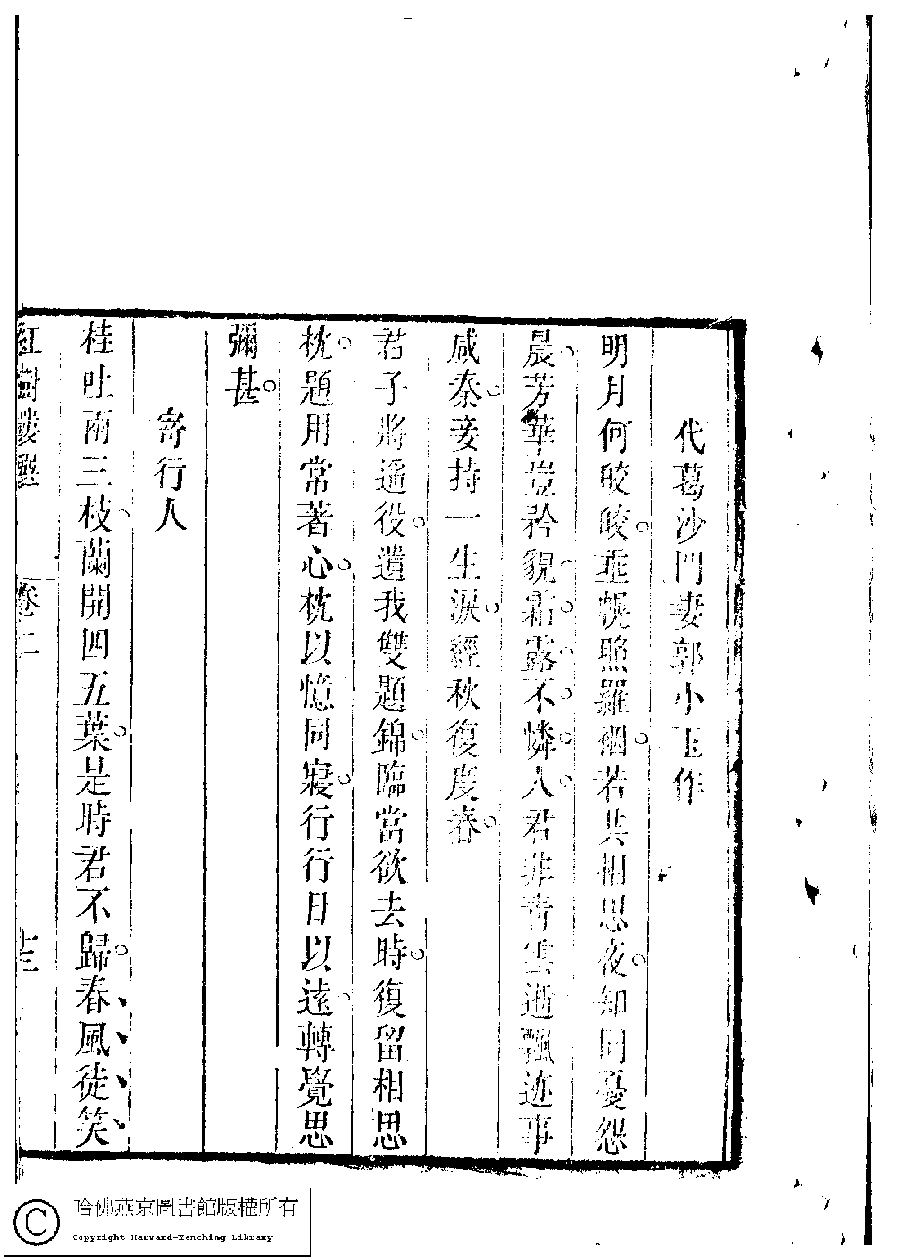 代葛沙門妻郭小玉作
明月何皎皎垂幌照羅裀若共相思夜知同憂怨
晨芳華豈矜貌霜露不憐人君非青雲逝飄迹事
咸秦妾持一生淚經秋復度春
君子將遥役遺我雙題錦臨當欲去時復留相思
枕題用常著心枕以憶同寢行行日以遠轉覺思
彌甚
寄行人
桂吐兩三枝蘭開四五葉是時君不歸春風徒笑
紅樹樓選 卷二 十三
哈佛燕京圖書館版權所有
Copyright Harvard-Yenching Library